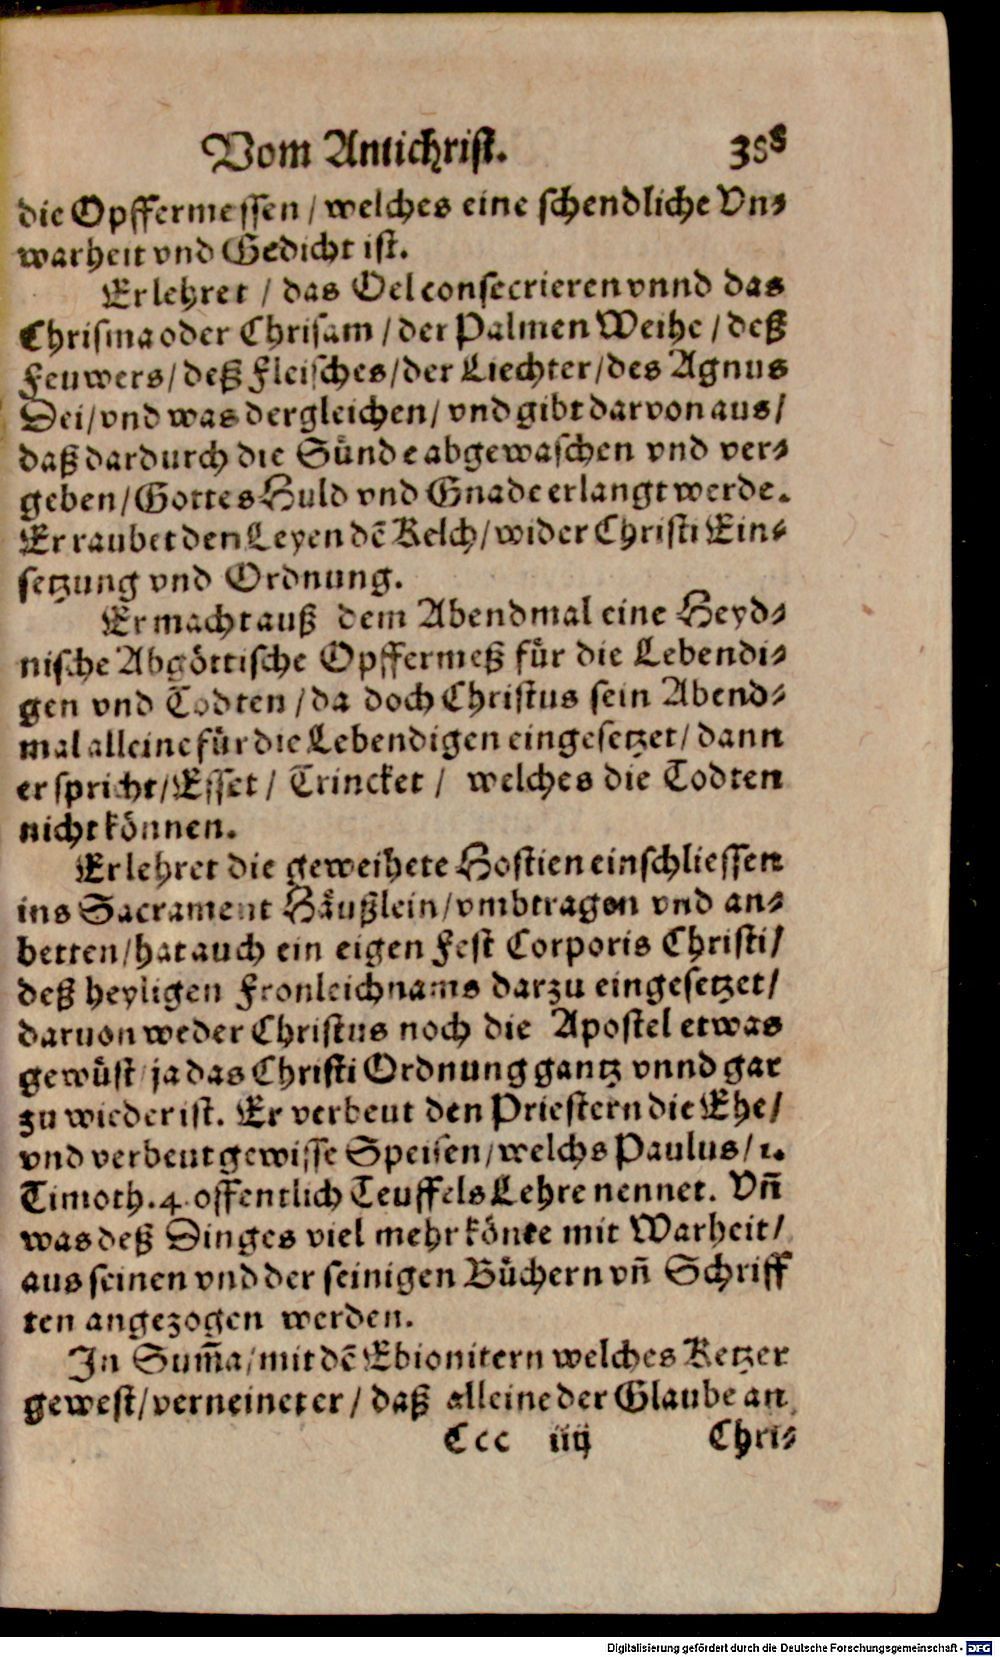 Vom Antichrist. 388
die Opffermessen / welches eine schendliche Vn⸗
warheit vnd Gedicht ist.
Er lehret / das Oel consecrieren vnnd das
Chrisma oder Chrisam / der Palmen Weihe / deß
Feuwers / deß Fleisches / der Liechter / des Agnus
Dei / vnd was dergleichen / vnd gibt darvon aus /
daß dardurch die Sünde abgewaschen vnd ver⸗
geben / Gottes Huld vnd Gnade erlangt werde.
Er raubet den Leyen dē Kelch / wider Christi Ein⸗
setzung vnd Ordnung.
Er macht auß dem Abendmal eine Heyd⸗
nische Abgöttische Opffermeß für die Lebendi⸗
gen vnd Todten / da doch Christus sein Abend⸗
mal alleine für die Lebendigen eingesetzet / dann
er spricht / Esset / Trincket / welches die Todten
nicht können.
Er lehret die geweihete Hostien einschliessen
ins Sacrament Häußlein / vmbtragen vnd an⸗
betten / hat auch ein eigen Fest Corporis Christi /
deß heyligen Fronleichnams darzu eingesetzet /
daruon weder Christus noch die Apostel etwas
gewüst / ja das Christi Ordnung gantz vnnd gar
zu wieder ist. Er verbeut den Priestern die Ehe /
vnd verbeut gewisse Speisen / welchs Paulus / 1.
Timoth. 4. offentlich Teuffels Lehre nennet. Vn̄
was deß Dinges viel mehr könte mit Warheit /
aus seinen vnd der seinigen Büchern vn̄ Schriff
ten angezogen werden.
In Sum̄a / mit dē Ebionitern welches Ketzer
gewest / verneinet er / daß alleine der Glaube an
Ccc iiij Chri⸗
Digitalisierung gefördert durch die Deutsche Forschungsgemeinschaft - DFG